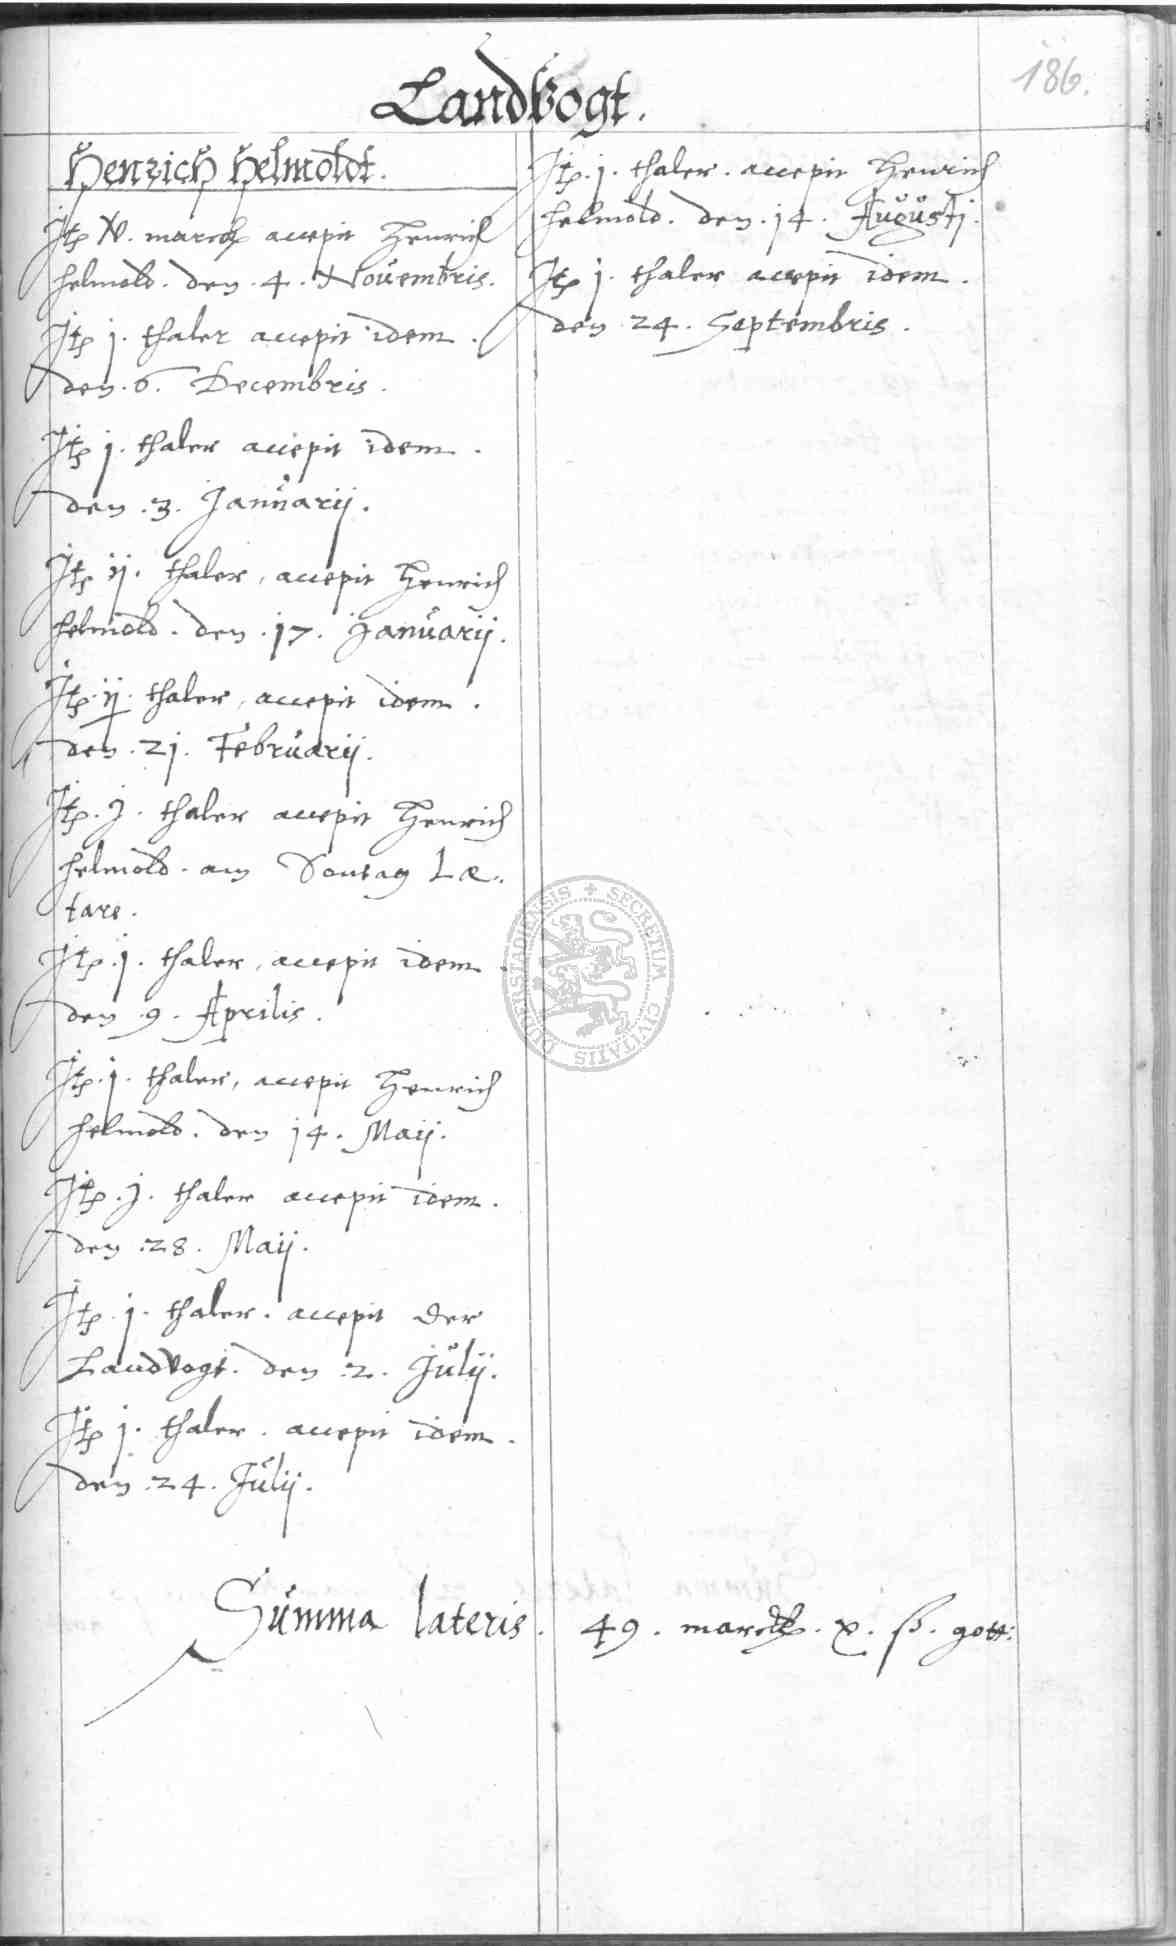 186.
Landvogt.
Henrich Helmoldt.
Itp v. marck accepit Henrich
helmold. den .4. Novembris.
Itp j. thaler accepit idem.
den .6. Decembris.
Itp j. thaler accepit idem.
den .3. Januarij.
Itp ij. thaler, accepit Henrich
helmold. den .17. Januarij.
Itp. ij. thaler, accepit idem.
den .2j. Februarij.
Itp. j. thaler accepit Henrich
helmold. am Sontag Læ.
tare.
Itp. j. thaler, accepit idem.
den .9. Aprilis.
Itp. j. thaler, accepit Henrich
helmold. den j4. Maij.
Itp. j. thaler accepit idem.
den .28. Maij.
Itp. j. thaler. accepit der
Landvogt. den .2. Julij.
Itp j. thaler. accepit idem.
den .24. Julij.
Itp. j. thaler. accepit Henrich
helmold. den .j4. Augustj.
Itp j. thaler accepit idem.
den .24. Septembris.
SECRETUM CIVITATIS DUDERSTADIENSIS
Summa lateris. 49. marck. x. ß. gott: